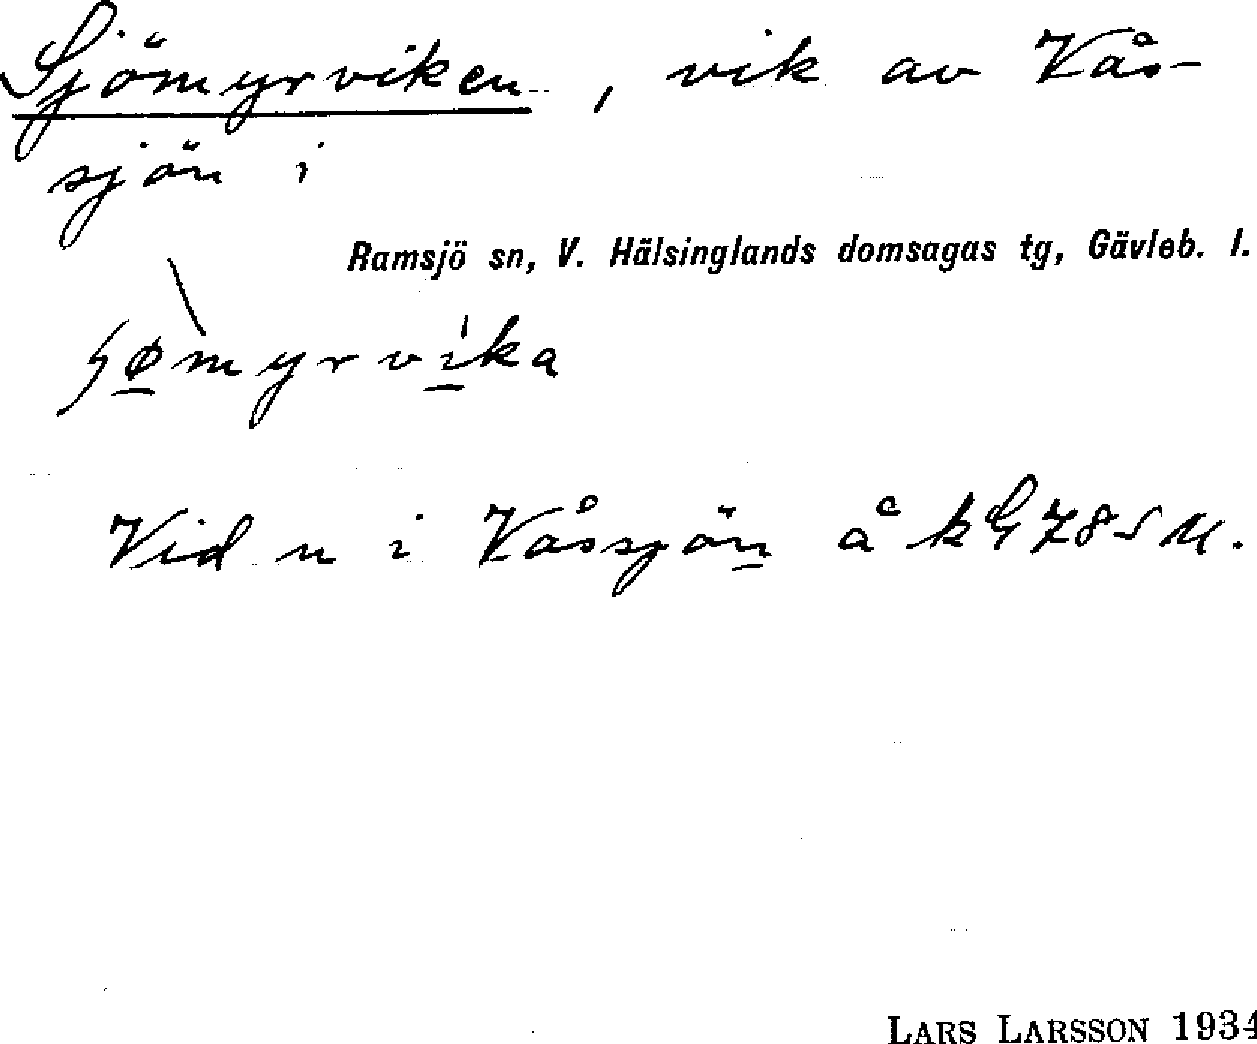 Sjömyrviken, vik av Vås-
sjön i
Ramsjö sn, V. Hälsinglands domsagas tg, Gävleb. l.
Vid n i Våssjön å
LARS LARSSON 1934